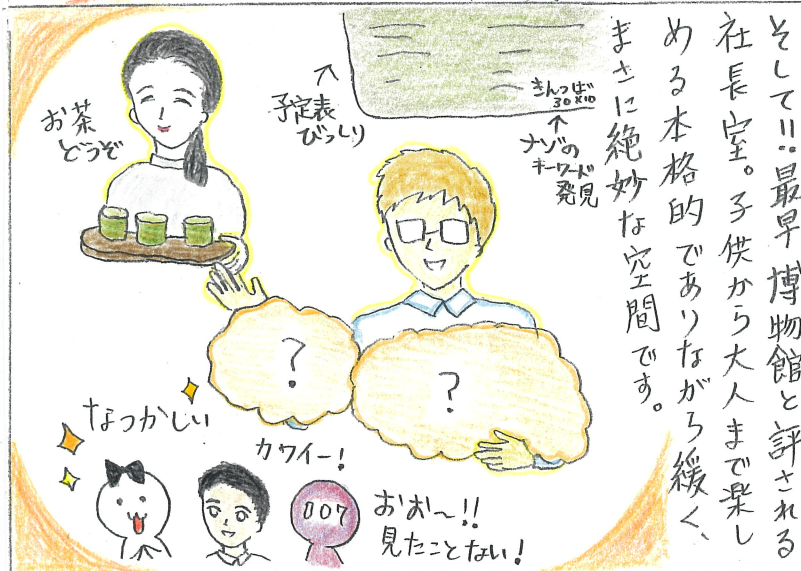 そして!!最早博物館と評される
社長室。子供から大人まで楽し
める本格的でありながら緩く、
まさに絶妙な空間です。
きんつば
30×10
ナゾの
キーワード
発見
予定表
びっしり
お茶
どうぞ
?
?
なつかしい
カワイー!
007
おお〜!!
見たことない!